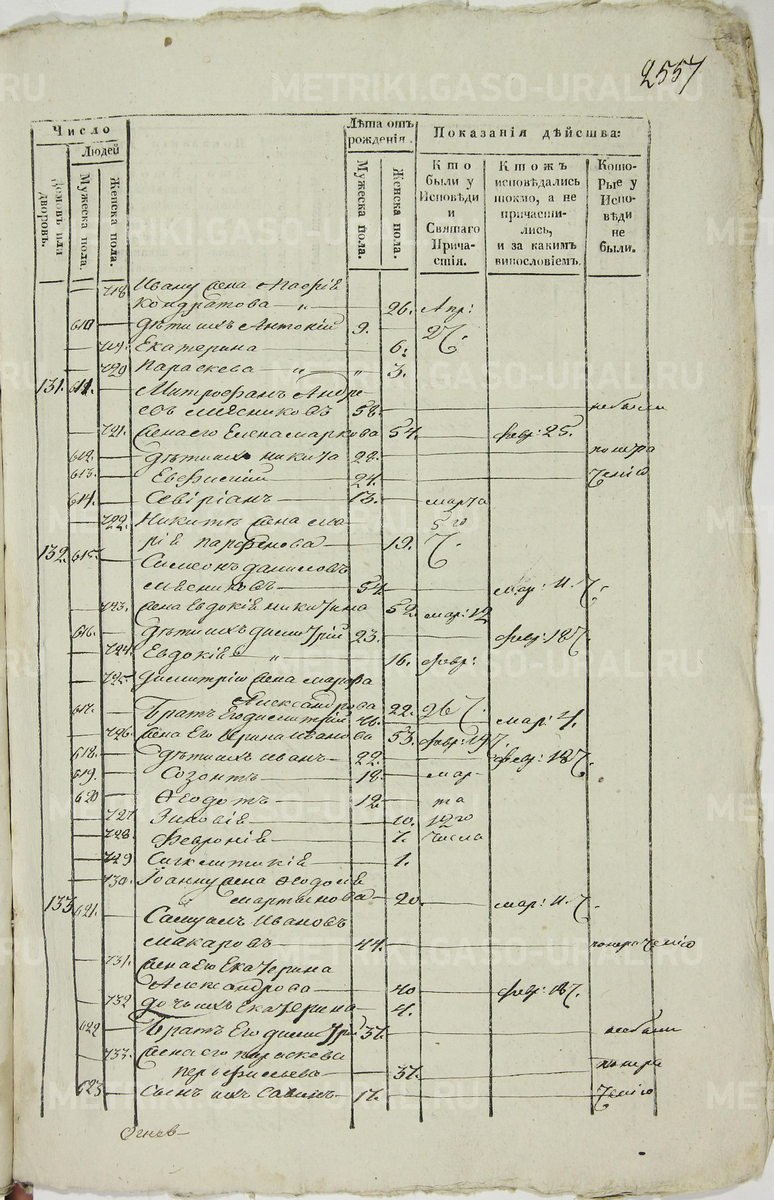 2557
Число
Людей
Домовъ или дворовъ.
Мужеска пола.
Женска пола.
Лѣта отъ рожденія.
Мужеска пола.
Женска пола.
Показанія дѣйства:
Кто были у Исповѣди и Святаго Причастія.
Кто жъ исповѣдались токмо, а не причастились, и за какимъ винословіемъ.
Которые у Исповѣди не были.
718 Ивану жена
Кондратова 26. Апр:
610 дѣти ихъ Антоній 9. 27.
719. Екатерина 6.
720 Параскева 3.
131. 611. Митрофанъ Андре-
евъ Мясниковъ 58. небыли
721. жена его Елена Маркова 54. февр: 25.
612. дѣти ихъ Никита 28. понера
613. Евфимий 24. ченію
614. Севиріанъ 13. марта
722. Никитѣ жена Ма- 5го
рія Парфенова 19.
132. 615. Симеонъ Даниловъ
Мясниковъ 54 мар: 4.
723. жена Евдокія Никитина 52. мар: 12
616. дѣти ихъ Димитрій 23. февр: 18
724. Евдокія 16. февр:
725. Димитрію жена Марфа
Александрова 22. 26
617. Братъ Его Димитрій мар: 4.
726. жена Его Ирина Иванова 53. февр: 19
618. дѣти ихъ Иванъ 22. февр: 18
619. Созонтъ 18. мар-
620 Ѳеодотъ 12. та
727 Зиновія 10. 12го
728. Февронія 7. числа
729 Сигклитикія 1.
730. Іоанну жена Ѳеодосія
Мартынова 20. мар: 4.
133 621. Самуилъ Ивановъ
Макаровъ 44. понераченію
731. жена Его Екатерина
Александрова 40 февр: 18
732 дочь ихъ Екатерина 4.
622 Братъ Его Димитрій 37. небыли
733. жена его Параскева понера
Перфильева 37.
623 сынъ ихъ Савинъ 17. ченію
METRIKI.GASO-URAL.RU